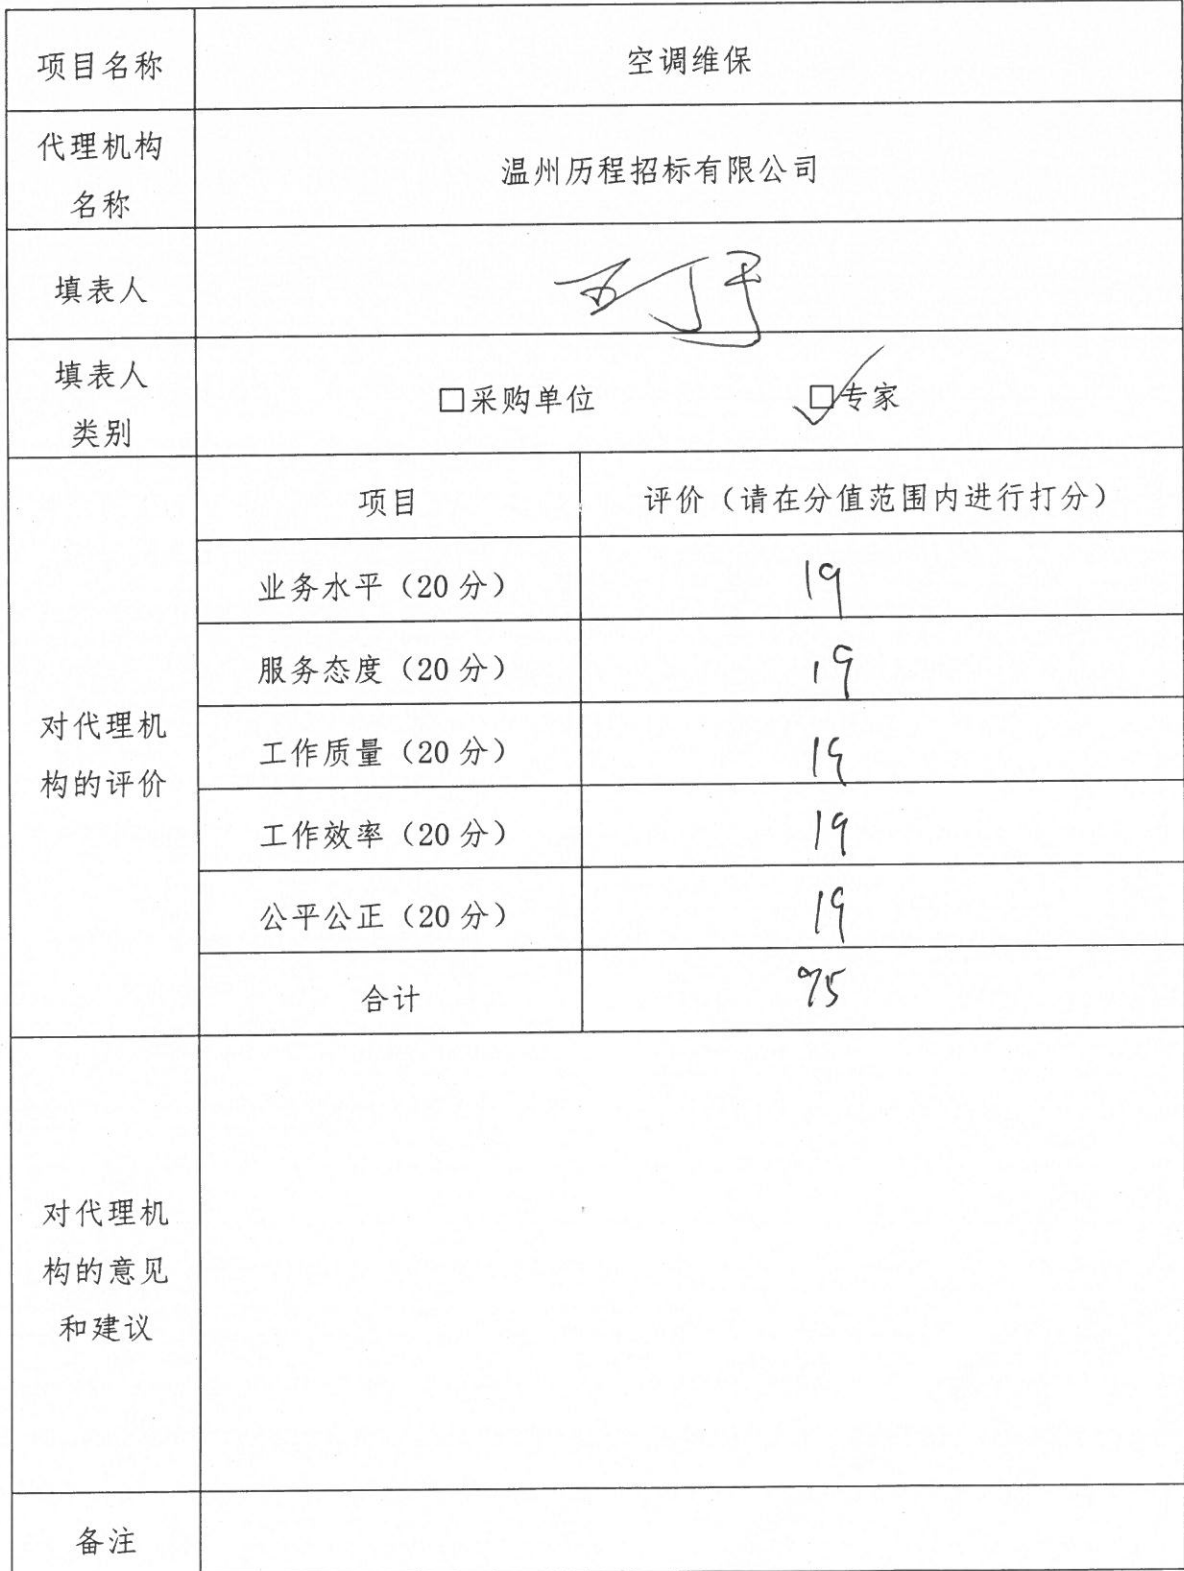 项目名称
空调维保
代理机构
名称
温州历程招标有限公司
填表人
填表人
类别
□采购单位
☑专家
对代理机
构的评价
项目
评价（请在分值范围内进行打分）
业务水平（20 分）
19
服务态度（20 分）
19
工作质量（20 分）
19
工作效率（20 分）
19
公平公正（20 分）
19
合计
95
对代理机
构的意见
和建议
备注